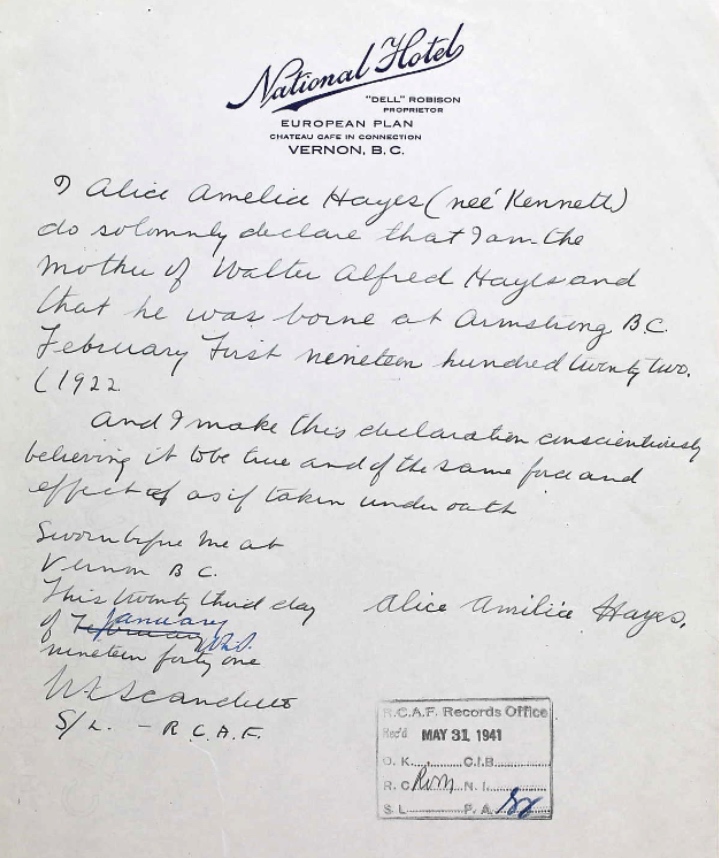 National Hotel
"DELL" ROBISON
PROPRIETOR
EUROPEAN PLAN
CHATEAU CAFE IN CONNECTION
VERNON, B.C.
I Alice Amelia Hayes (neé Kenneth)
do solomnly declare that I am the
mother of Walter Alfred Hayes and
that he was borne at Armstrong B.C.
February First nineteen hundred twenty two.
(1922
And I make this declaration conscientiously
believing it to be true and of the same force and
effect of as if taken under oath
Sworn before me at
Vernon B C.
This twenty third day
of February January
nineteen forty one
Alice Amilia Hayes.
S/L. - R.C.A.F.
R.C.A.F. Records Office
Rec'd MAY 31 1941
O. K. C.I.B.
R. C. N. I.
S L P. A.